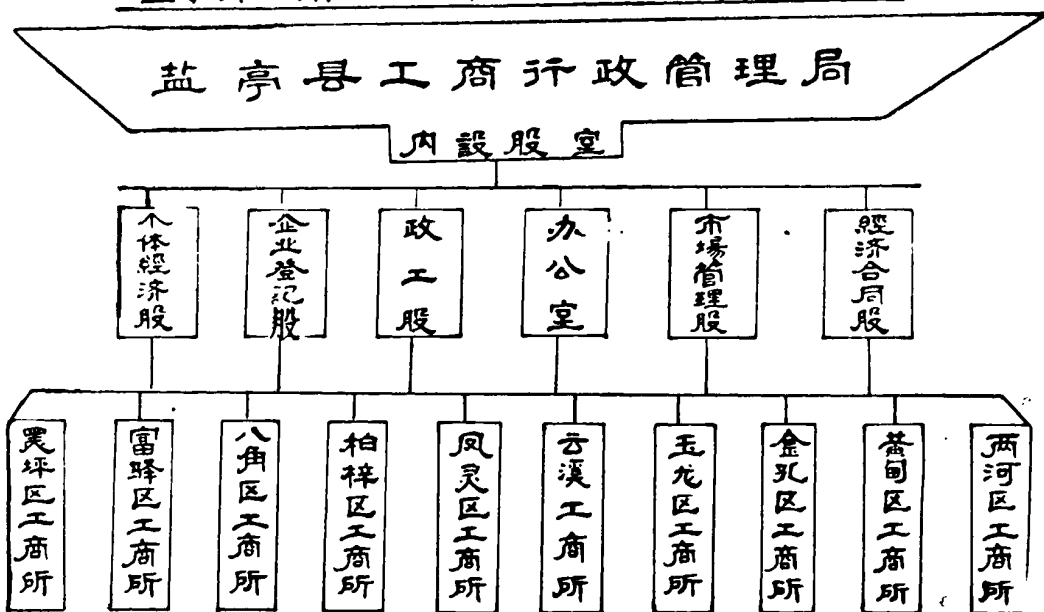 盐亭县工商行政管理局
内設股室
个体經济股
企业登记股
政工股
办公室
市場管理股
經济合同股
黑坪区工商所
富驿区工商所
八角区工商所
柏梓区工商所
凤灵区工商所
云溪工商所
玉龙区工商所
金孔区工商所
黄甸区工商所
两河区工商所